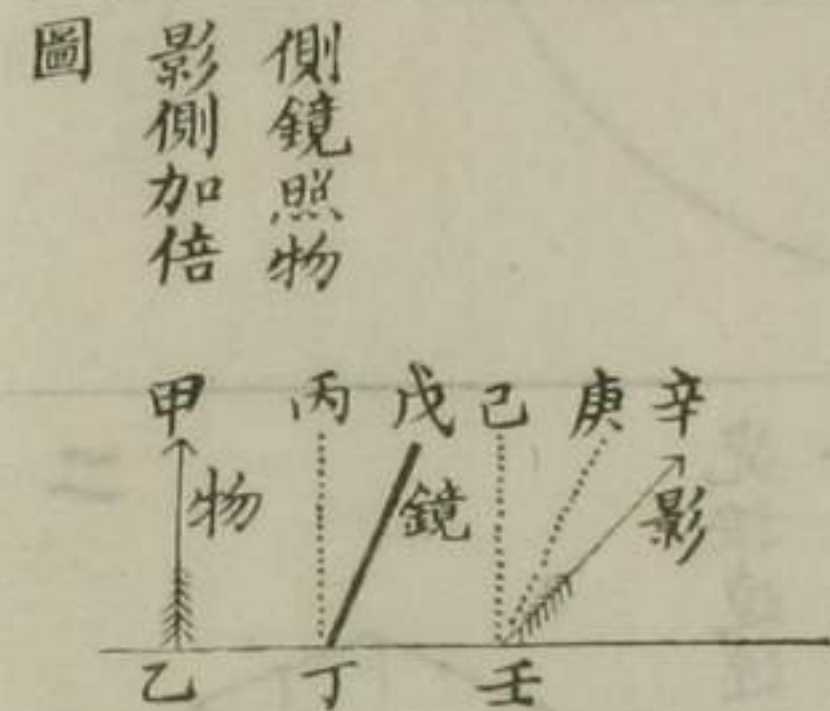 側鏡照物
影側加倍
圖
甲 丙 戊 己 庚 辛
物 鏡 影
乙 丁 壬